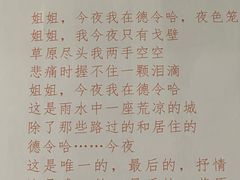 姐姐，今夜我在德令哈，夜色笼
姐姐，我今夜只有戈壁
草原尽头我两手空空
悲痛时握不住一颗泪滴
姐姐，今夜我在德令哈
这是雨水中一座荒凉的城
除了那些路过的和居住的
德令哈……今夜
这是唯一的，最后的，抒情